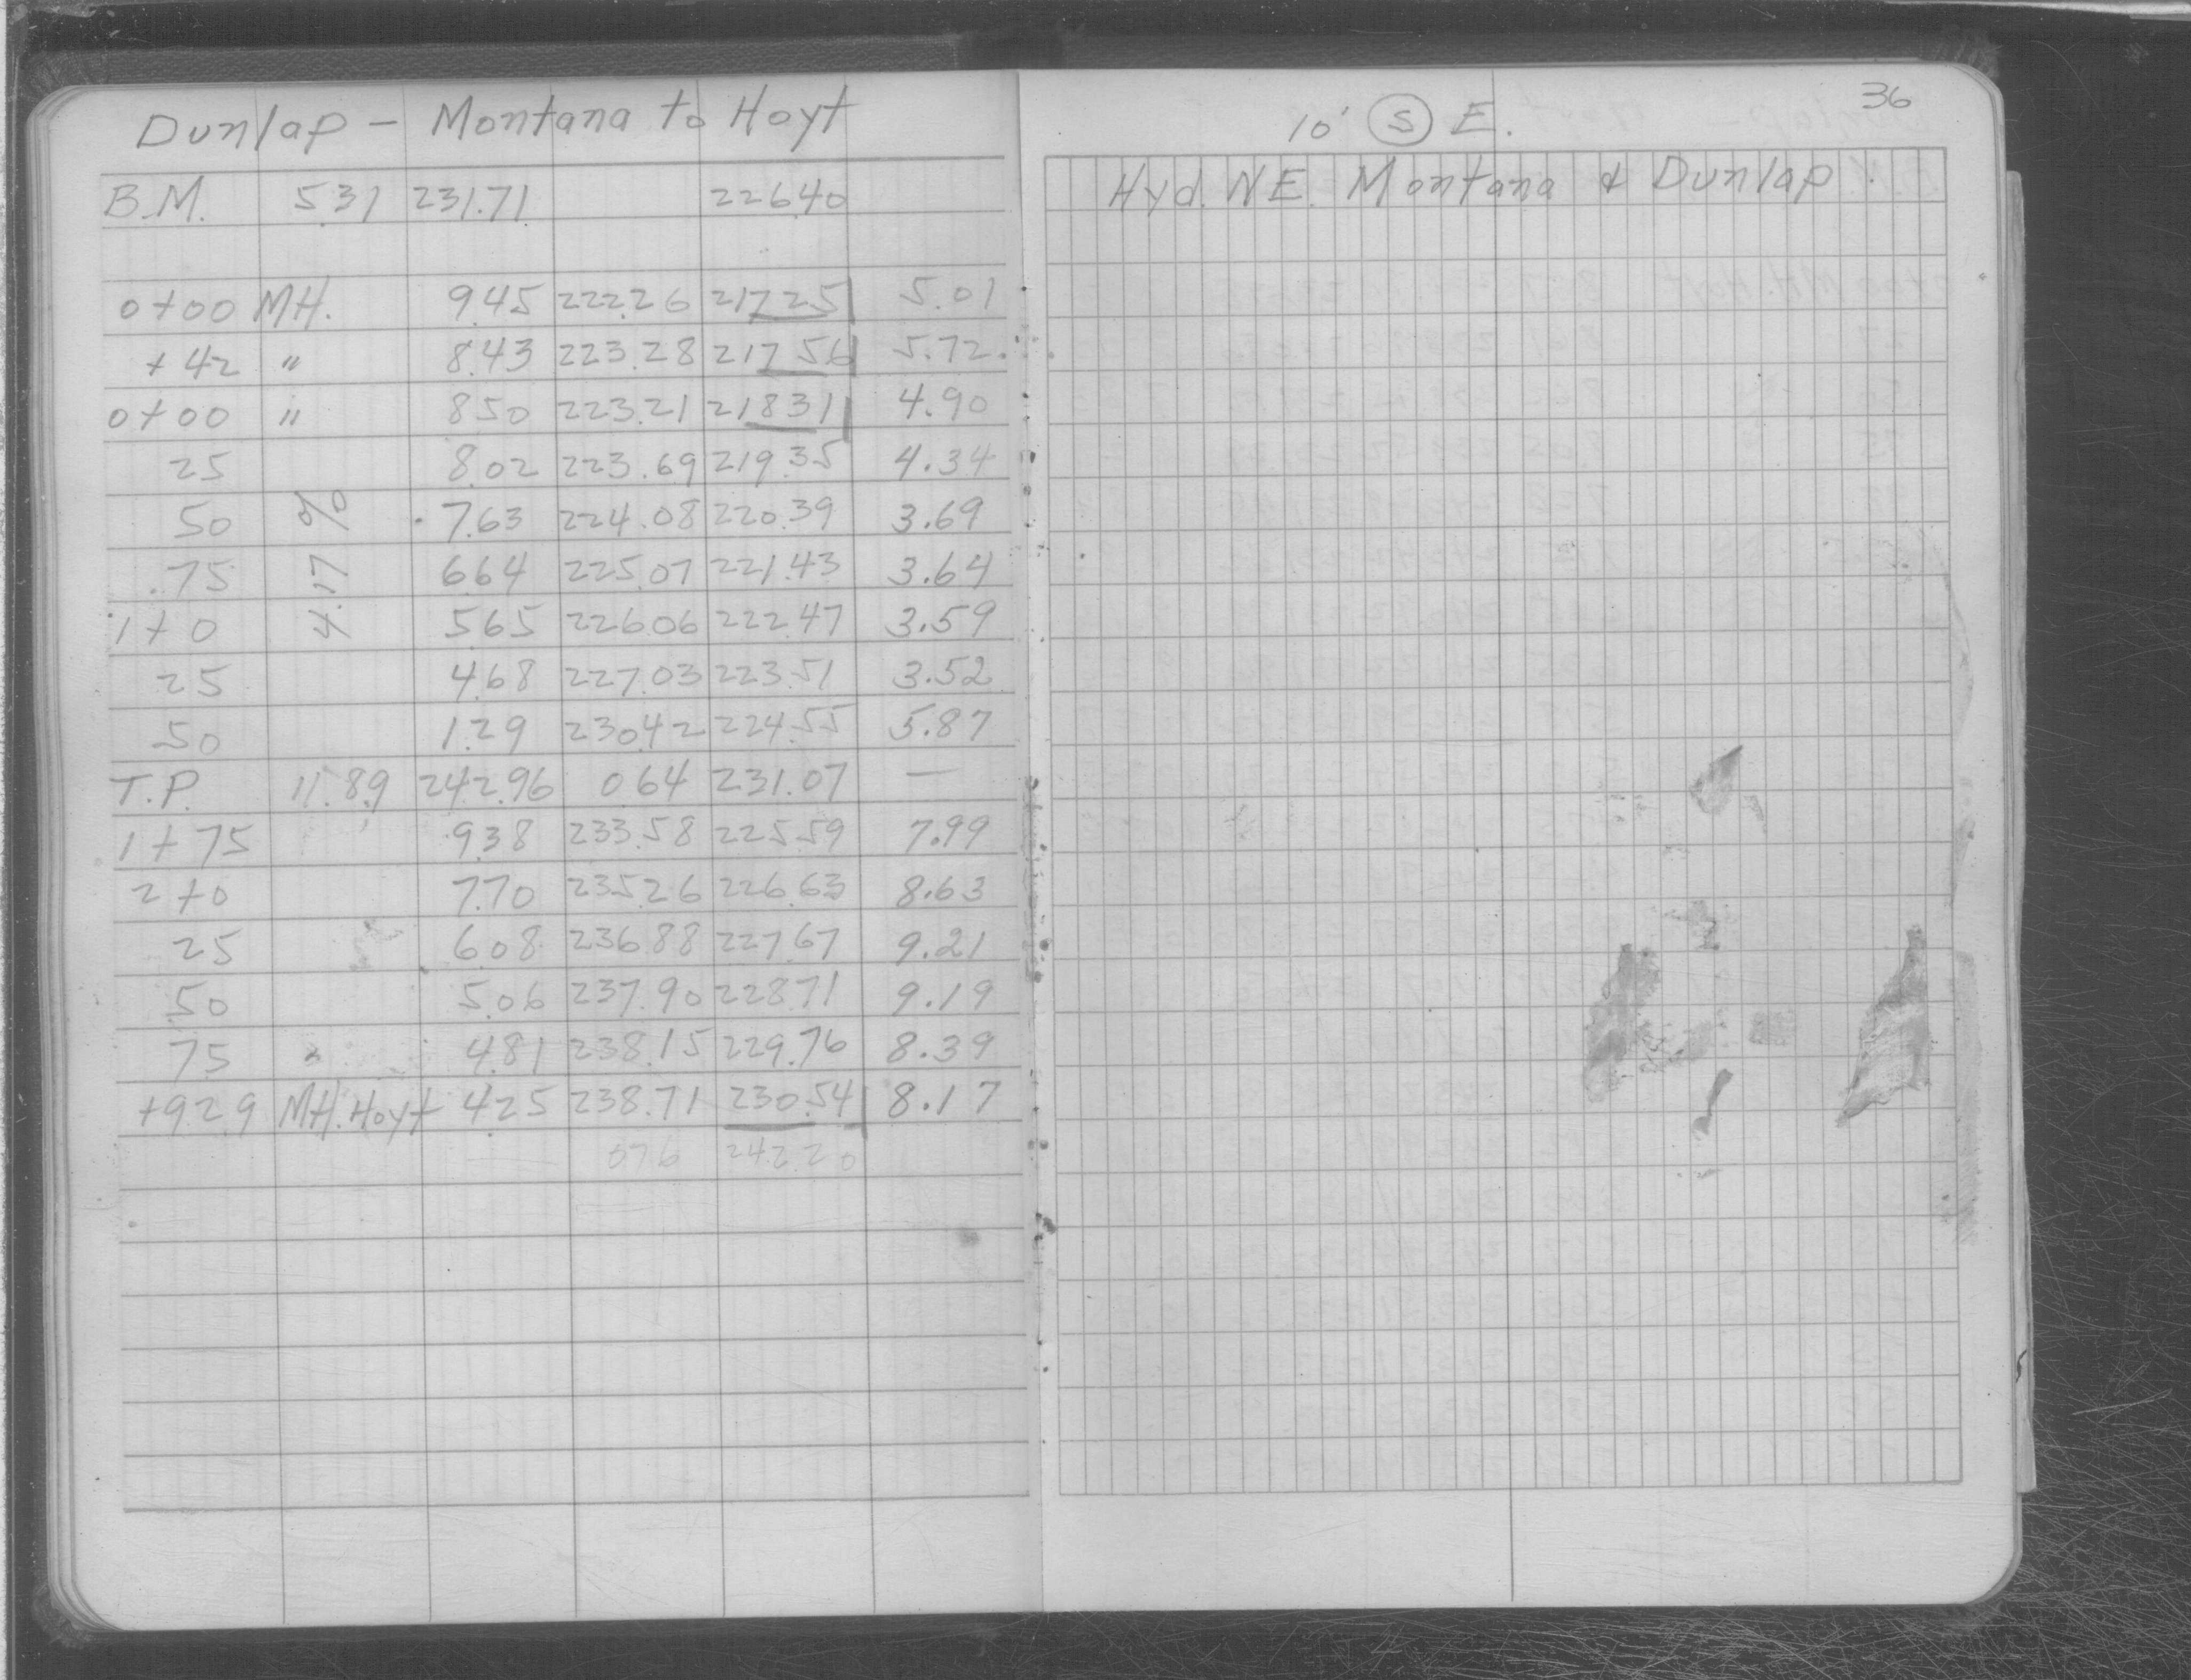 Dunlap - Montana to Hoyt
B.M. 5.31 231.71 226.40
0+00 MH. 9.45 222.26 217.25 5.01
+42 " 8.43 223.28 217.56 5.72
0+00 " 8.50 223.21 218.31 4.90
25 8.02 223.69 219.35 4.34
50 7.63 224.08 220.39 3.69
75 6.64 225.07 221.43 3.64
1+0 5.65 226.06 222.47 3.59
25 4.68 227.03 223.51 3.52
50 1.29 230.42 224.55 5.87
4.17 %
T.P. 11.89 242.96 0.64 231.07 —
1+75 9.38 233.58 225.59 7.99
2+0 7.70 235.26 226.63 8.63
25 6.08 236.88 227.67 9.21
50 5.06 237.90 228.71 9.19
75 4.81 238.15 229.76 8.39
+92.9 MH. Hoyt 4.25 238.71 230.54 8.17
0.76 242.20
36
10' S E.
Hyd. NE. Montana & Dunlap.